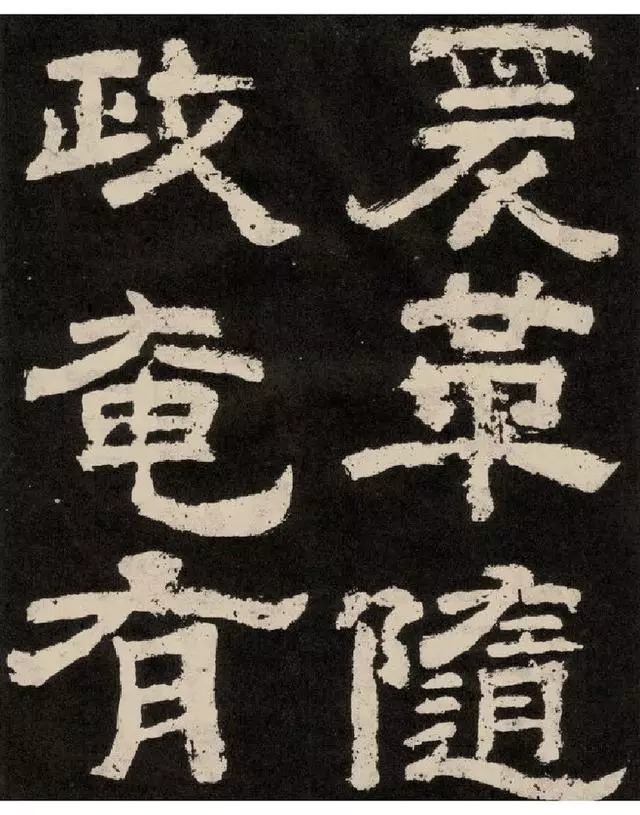 爰革隨
政奄有